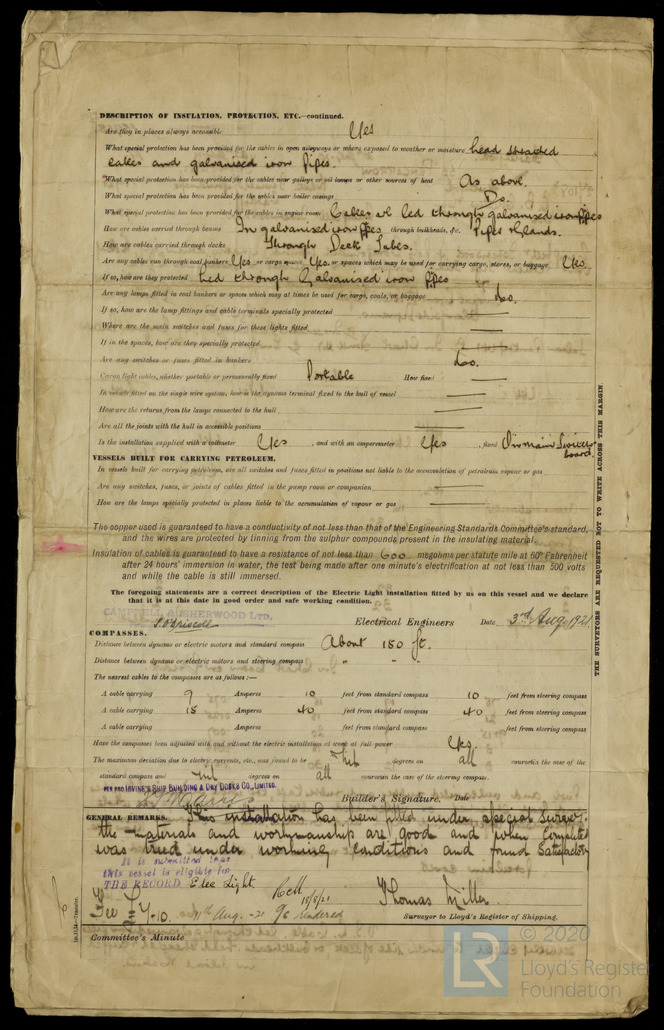 DESCRIPTION OF INSULATION, PROTECTION, ETC.—continued.
Are they in places always accessible Yes
What special protection has been provided for the cables in open alleyways or where exposed to weather or moisture head sheated
cables and galvanised iron pipes.
What special protection has been provided for the cables near galleys or oil lamps or other sources of heat As above.
What special protection has been provided for the cables near boiler casings Do.
What special protection has been provided for the cables in engine room Cables led through galvanised iron pipes
How are cables carried through beams In galvanised iron pipes through bulkheads, &c. Pipes Glands.
How are cables carried through decks Through Deck Tubes.
Are any cables run through coal bunkers Yes or cargo spaces Yes or spaces which may be used for carrying cargo, stores, or baggage Yes.
If so, how are they protected Led through Galvanised iron pipes
Are any lamps fitted in coal bunkers or spaces which may at times be used for cargo, coals, or baggage No.
If so, how are the lamp fittings and cable terminals specially protected
Where are the main switches and fuses for these lights fitted
If in the spaces, how are they specially protected
Are any switches or fuses fitted in bunkers No.
Cargo light cables, whether portable or permanently fixed Portable How fixed
In vessels fitted on the single wire system, how is the dynamo terminal fixed to the hull of vessel
How are the returns from the lamps connected to the hull
Are all the joints with the hull in accessible positions
Is the installation supplied with a voltmeter Yes , and with an amperemeter Yes , fixed On main Switch board
VESSELS BUILT FOR CARRYING PETROLEUM.
In vessels built for carrying petroleum, are all switches and fuses fitted in positions not liable to the accumulation of petroleum vapour or gas
Are any switches, fuses, or joints of cables fitted in the pump room or companion
How are the lamps specially protected in places liable to the accumulation of vapour or gas
The copper used is guaranteed to have a conductivity of not less than that of the Engineering Standards Committee's standard,
and the wires are protected by tinning from the sulphur compounds present in the insulating material.
Insulation of cables is guaranteed to have a resistance of not less than 600 megohms per statute mile at 60° Fahrenheit
after 24 hours' immersion in water, the test being made after one minute's electrification at not less than 500 volts
and while the cable is still immersed.
The foregoing statements are a correct description of the Electric Light installation fitted by us on this vessel and we declare
that it is at date in good order and safe working condition.
CAMPBELL & ISHERWOOD LTD,
Electrical Engineers Date 3rd Aug 1921
COMPASSES.
Distance between dynamo or electric motors and standard compass About 150 ft.
Distance between dynamo or electric motors and steering compass " "
The nearest cables to the compasses are as follows:—
A cable carrying 9 Amperes 10 feet from standard compass 10 feet from steering compass
A cable carrying 18 Amperes 40 feet from standard compass 40 feet from steering compass
A cable carrying Amperes feet from standard compass feet from steering compass
Have the compasses been adjusted with and without the electric installation at work at full power Yes.
The maximum deviation due to electric currents, etc., was found to be Nil degrees on all course in the case of the
standard compass and nil degrees on all course in the case of the steering compass.
PER PRO IRVINE'S SHIP BUILDING & DRY DOCKS CO., LIMITED.
Builder's Signature. Date
GENERAL REMARKS. This installation has been fitted under special survey.
the materials and workmanship are good and when completed
was tried under working conditions and found Satisfactory
It is submitted that
this vessel is eligible for
THE RECORD Elec Light. 18/8/21
Thomas Miller
Surveyor to Lloyd's Register of Shipping.
Committee's Minute
THE SURVEYORS ARE REQUESTED NOT TO WRITE ACROSS THIS MARGIN.
© 2020
LR
Lloyd's Register
Foundation